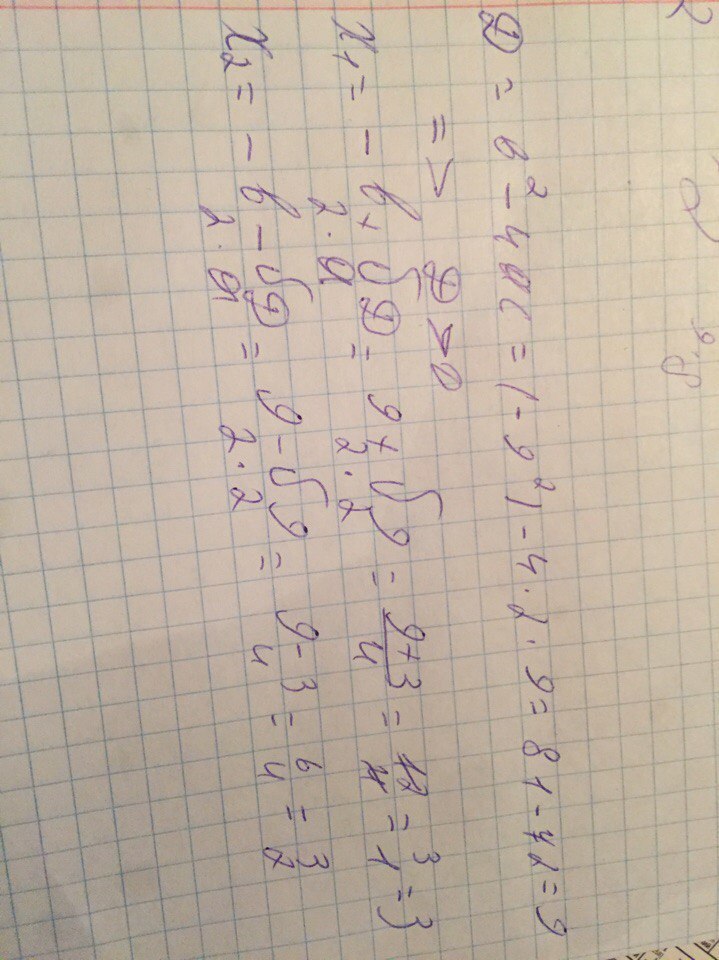 D = b² - 4ac = (-9²) - 4·2·9 = 81 - 72 = 9
=> D > 0
x₁ = (-b + √D)/(2·a) = (9 + √9)/(2·2) = (9+3)/4 = 12/4 = 3/1 = 3
x₂ = (-b - √D)/(2·a) = (9 - √9)/(2·2) = (9-3)/4 = 6/4 = 3/2